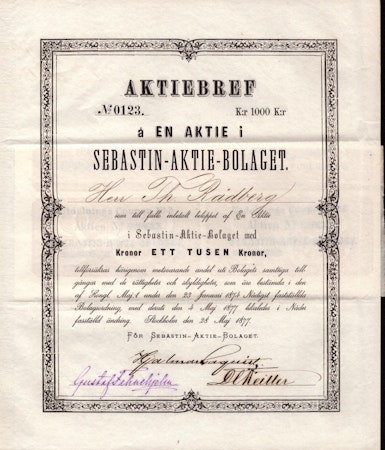 AKTIEBREF
№ 0123. K:r 1000 K:r
å EN AKTIE i
SEBASTIN-AKTIE-BOLAGET.
Herr Th. Rådberg
som till fullo inbetalt beloppet af En Aktie
i Sebastin-Aktie-Bolaget med
Kronor ETT TUSEN Kronor,
tillförsäkras härigenom motsvarande andel uti Bolagets samtliga till-
gångar med de rättigheter och skyldigheter, som äro bestämda i den
af Kongl. Maj:t under den 23 Januari 1874 Nådigst fastställda
Bolagsordning, med densamma den 4 Maj 1877 likaledes i Nåder
fastställd ändring. Stockholm den 28 Maj 1877.
FÖR SEBASTIN-AKTIE-BOLAGET.
Hjalmar
Gustaf Fahnehjelm